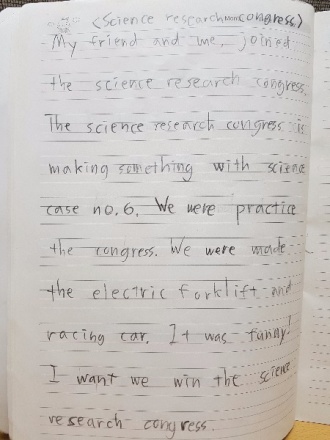 (Science research congress)
My friend and me, joined
the science research congress.
The science research congress is
making something with science
case no.6. We were practice
the congress. We were made
the electric forklift and
racing car. It was funny!
I want we win the science
research congress.